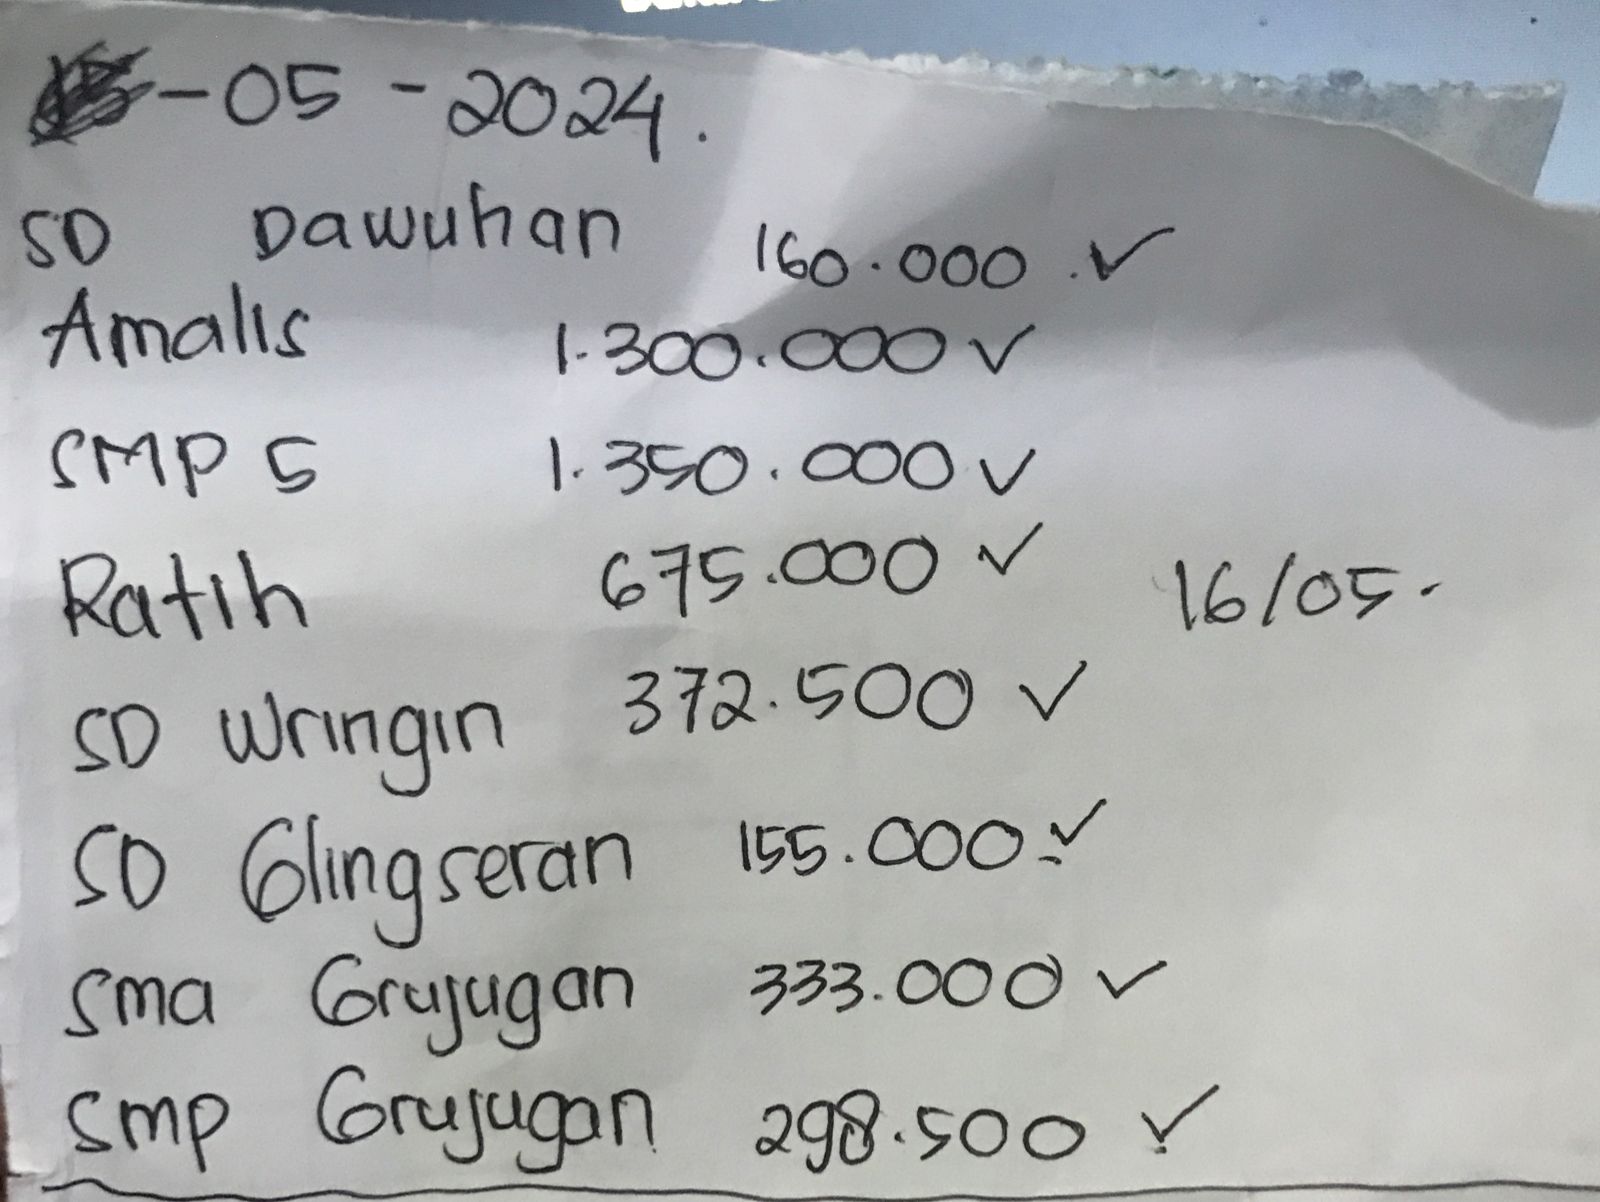 -05-2024.
SD Dawuhan 160.000 ✓
Amalls 1.300.000 ✓
SMP 5 1.350.000 ✓
Ratih 675.000 ✓ 16/05.
SD Wringin 372.500 ✓
SD Glingseran 155.000 ✓
Sma Grujugan 333.000 ✓
Smp Grujugan 298.500 ✓